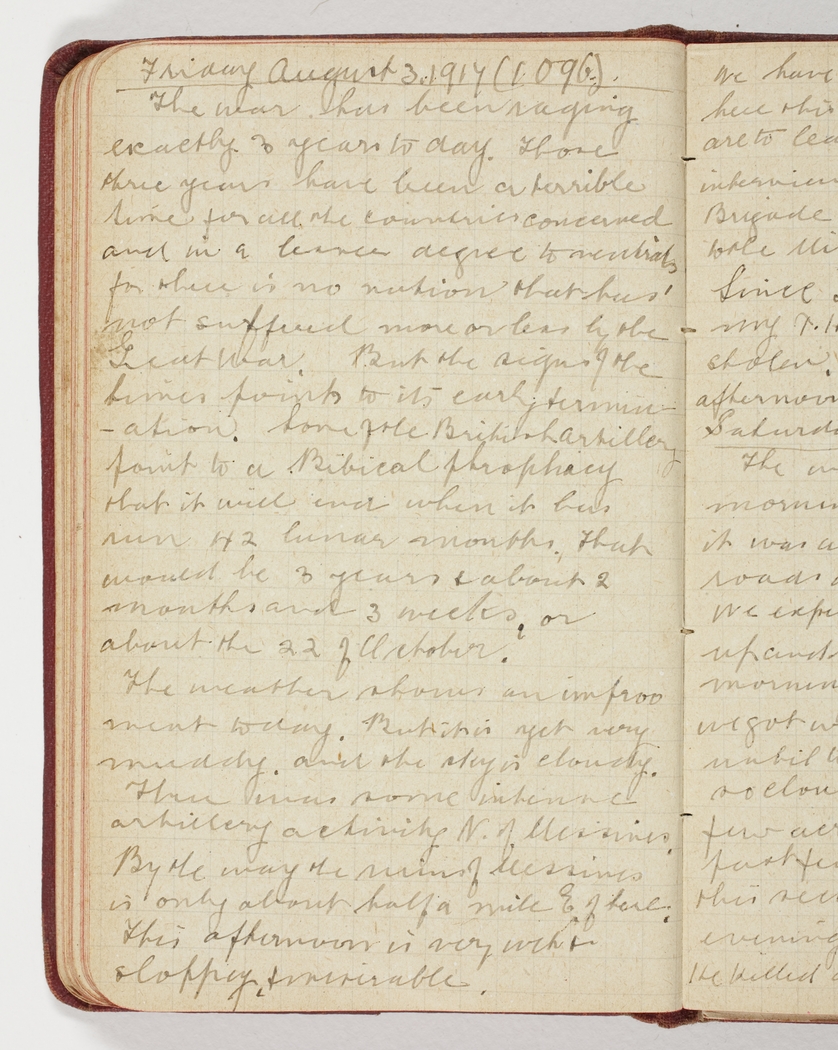 Friday August 3. 1917 (1096).
The war has been raging
exactly 3 years to day. Those
three years have been a terrible
time for all the countries concerned
and in a lesser degree to neutrals
for there is no nation that has
not suffered more or less by the
Great War. But the signs of the
times points to its early termin-
-ation. Some of the British Artillery
point to a Bibical phrophacy
that it will end when it has
run 42 lunar months. That
would be 3 years & about 2
months and 3 weeks, or
about the 22 of October.
The weather shows an improo
ment today. But it is yet very
muddy, and the sky is cloudy.
There was some intense
artillery activity N. of Messines.
By the way the ruins of Messines
is only about half a mile E of here.
This afternoon is very wet &
sloppy, & miserable.
We have
here this
are to
Brigade
to the
Since
my
stolen.
afternoon
The
it was
roads
We
up and
until
few
this
evening
He killed